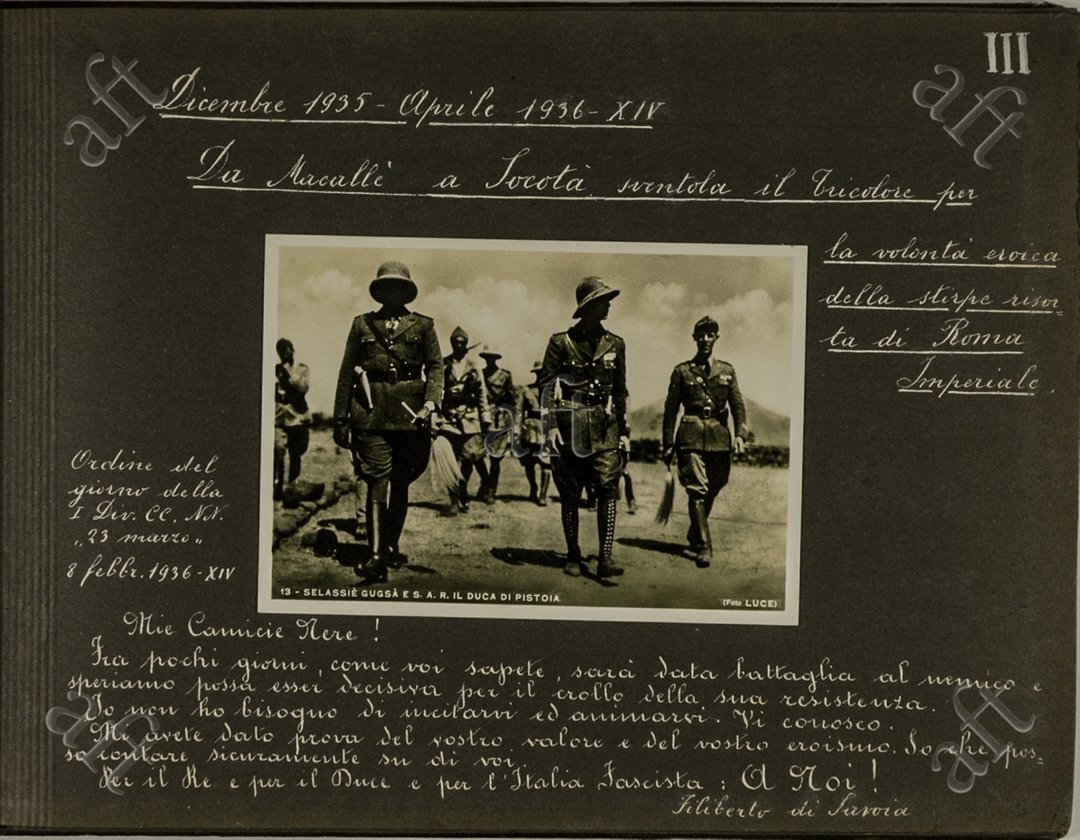 III
Dicembre 1935 - Aprile 1936 - XIV
Da Macallè a Socotà sventola il Tricolore per
la volontà eroica
della stirpe risor-
ta di Roma
Imperiale.
Ordine del
giorno della
I Div. CC. NN.
„23 marzo„
8 febbr. 1936 - XIV
13 - SELASSIÈ GUGSÀ E S. A. R. IL DUCA DI PISTOIA
(Foto LUCE)
Mie Camicie Nere !
Fra pochi giorni, come voi sapete, sarà data battaglia al nemico e
speriamo possa esser decisiva per il crollo della sua resistenza.
Io non ho bisogno di incitarvi ed animarvi. Vi conosco.
Mi avete dato prova del vostro valore e del vostro eroismo. So che pos=
so contare sicuramente su di voi.
Per il Re e per il Duce e per l'Italia Fascista : A Noi !
Filiberto di Savoia
aft
aft
aft
aft
aft